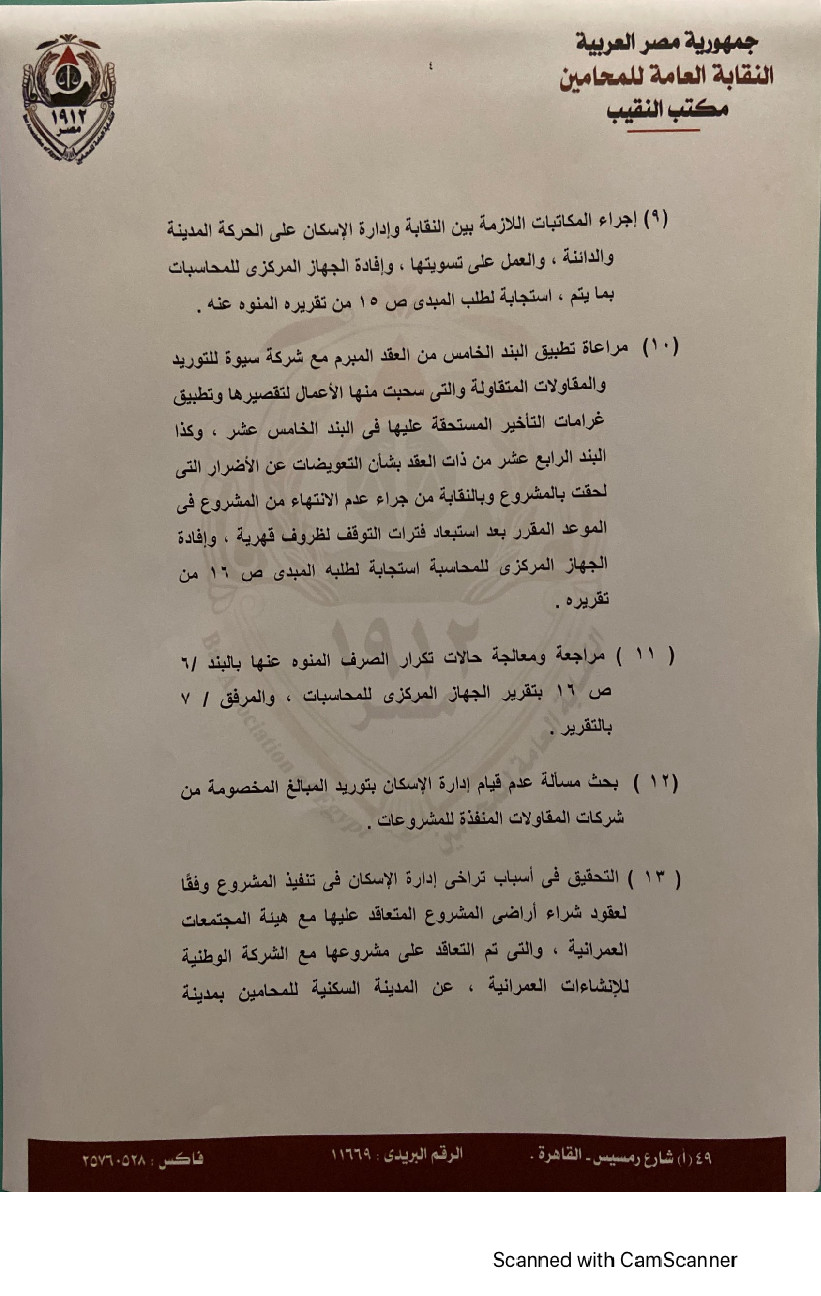 جمهورية مصر العربية
النقابة العامة للمحامين
مكتب النقيب
٤
١٩١٢
مصر
(٩) إجراء المكاتبات اللازمة بين النقابة وإدارة الإسكان على الحركة المدينة
والدائنة ، والعمل على تسويتها ، وإفادة الجهاز المركزى للمحاسبات
بما يتم ، استجابة لطلب المبدى ص ١٥ من تقريره المنوه عنه .
(١٠) مراعاة تطبيق البند الخامس من العقد المبرم مع شركة سيوة للتوريد
والمقاولات المتقاولة والتى سحبت منها الأعمال لتقصيرها وتطبيق
غرامات التأخير المستحقة عليها فى البند الخامس عشر ، وكذا
البند الرابع عشر من ذات العقد بشأن التعويضات عن الأضرار التى
لحقت بالمشروع وبالنقابة من جراء عدم الانتهاء من المشروع فى
الموعد المقرر بعد استبعاد فترات التوقف لظروف قهرية ، وإفادة
الجهاز المركزى للمحاسبة استجابة لطلبه المبدى ص ١٦ من
تقريره .
( ١١ ) مراجعة ومعالجة حالات تكرار الصرف المنوه عنها بالبند /٦
ص ١٦ بتقرير الجهاز المركزى للمحاسبات ، والمرفق / ٧
بالتقرير .
(١٢ ) بحث مسألة عدم قيام إدارة الإسكان بتوريد المبالغ المخصومة من
شركات المقاولات المنفذة للمشروعات .
( ١٣ ) التحقيق فى أسباب تراخى إدارة الإسكان فى تنفيذ المشروع وفقًا
لعقود شراء أراضى المشروع المتعاقد عليها مع هيئة المجتمعات
العمرانية ، والتى تم التعاقد على مشروعها مع الشركة الوطنية
للإنشاءات العمرانية ، عن المدينة السكنية للمحامين بمدينة
٤٩ (أ) شارع رمسيس - القاهرة . الرقم البريدى : ١١٦٦٩ فاكس : ٢٥٧٦٠٥٢٨
Scanned with CamScanner